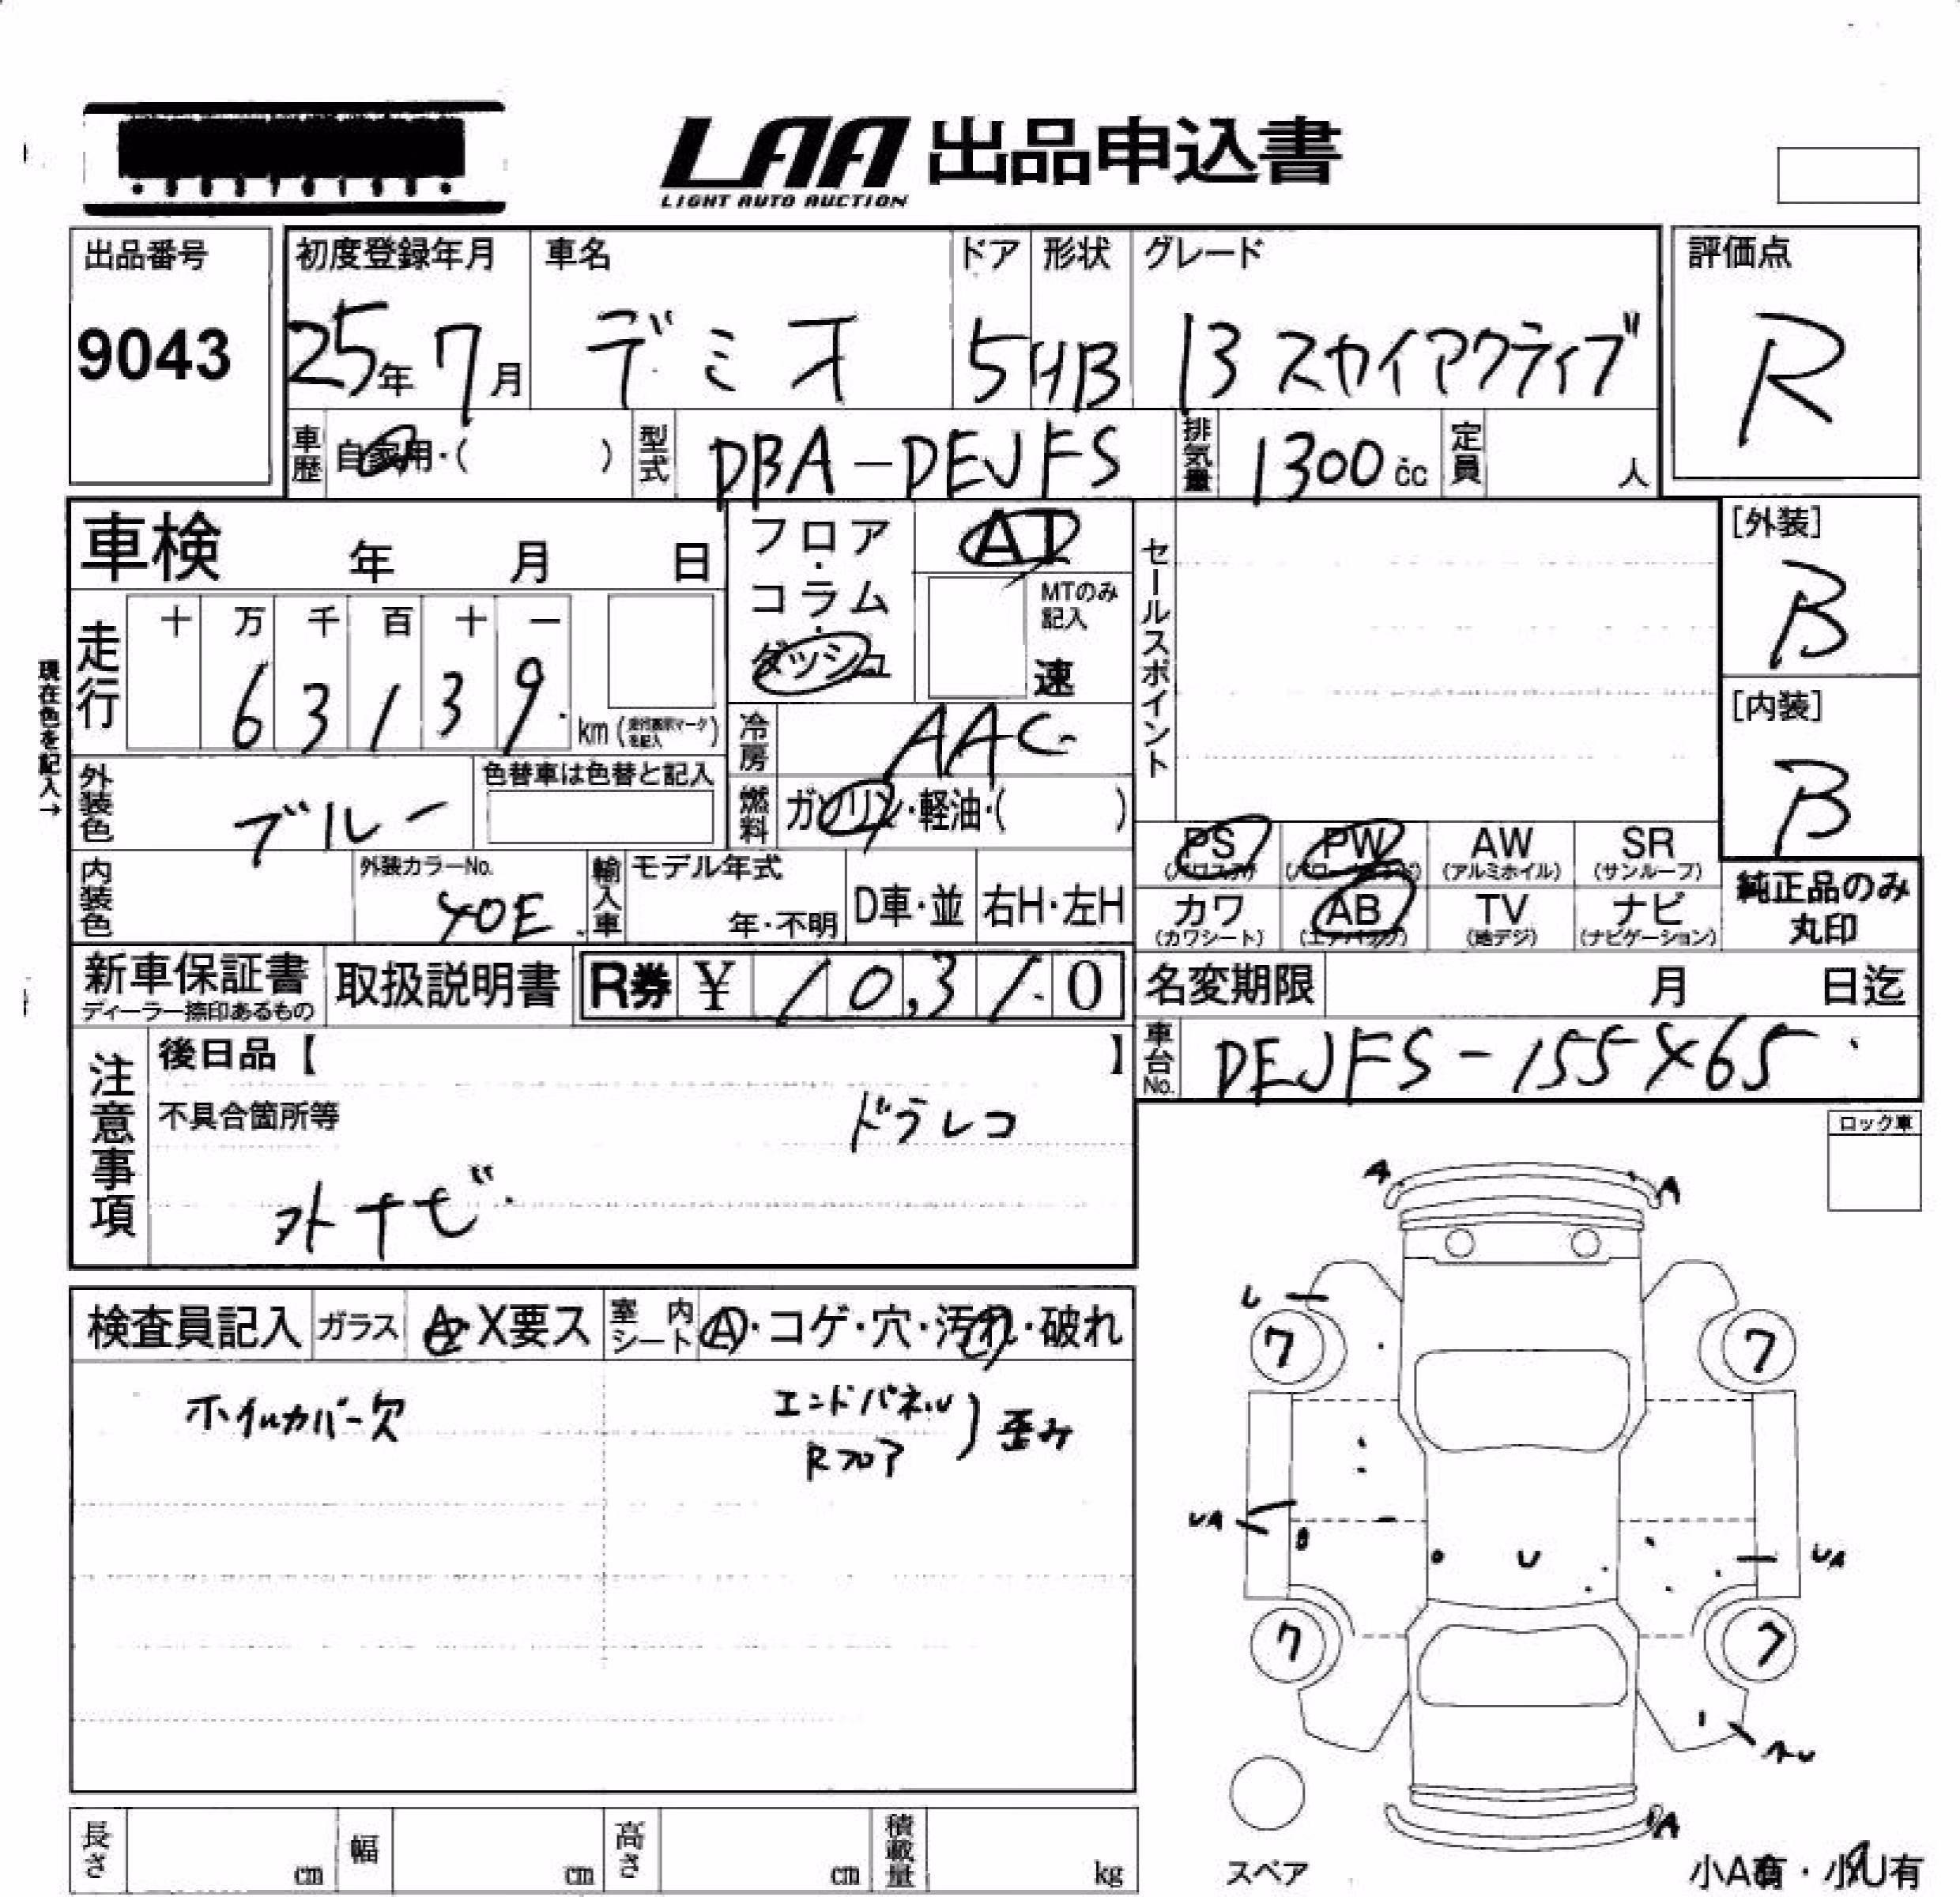 LAA 出品申込書
LIGHT AUTO AUCTION
出品番号
9043
初度登録年月 車名 ドア 形状 グレード
25年 7月 デミオ 5 HB 13 スカイアクティブ
評価点
R
車歴 自家用・( ) 型式 DBA-DEJFS 排気量 1300 cc 定員 人
車検 年 月 日
フロア・コラム・ダッシュ
AT
MTのみ記入
速
セールスポイント
[外装]
B
[内装]
B
現在色を記入→
走行 十 万 千 百 十 一
6 3 1 3 9
km (走行表示マークを記入)
冷房 AAC
外装色 ブルー
色替車は色替と記入
燃料 ガソリン・軽油・( )
PS (パワステ) PW (パワーウィンド) AW (アルミホイル) SR (サンルーフ)
カワ (カワシート) AB (エアバック) TV (地デジ) ナビ (ナビゲーション)
純正品のみ
丸印
内装色 外装カラーNo. 40E
輸入車 モデル年式 年・不明 D車・並 右H・左H
新車保証書
ディーラー捺印あるもの
取扱説明書 R券 ¥ 10,310
名変期限 月 日迄
車台No. DEJFS-155465
注意事項
後日品【 】
不具合箇所等
ドラレコ
外ナビ
ロック車
A A
検査員記入 ガラス A・X要ス 室内シート A・コゲ・穴・汚れ・破れ
ホイルカバー欠
エンドパネル
Rフロア
歪み
U
ワ ワ
UA
U
UA
ワ ワ
A
スペア
小A有・小U有
長さ cm 幅 cm 高さ cm 積載量 kg